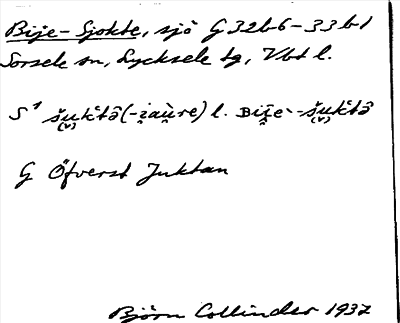 Bije-Sjokte, sjö G 32b6-33b1
Sorsele sn, Lycksele tg, Vbt l.
S¹ šu̮kˈtə̑ (-i̭au̯re) l. Bije-šu̮kˈtə̑
G Öfverst Juktan
Björn Collinder 1937